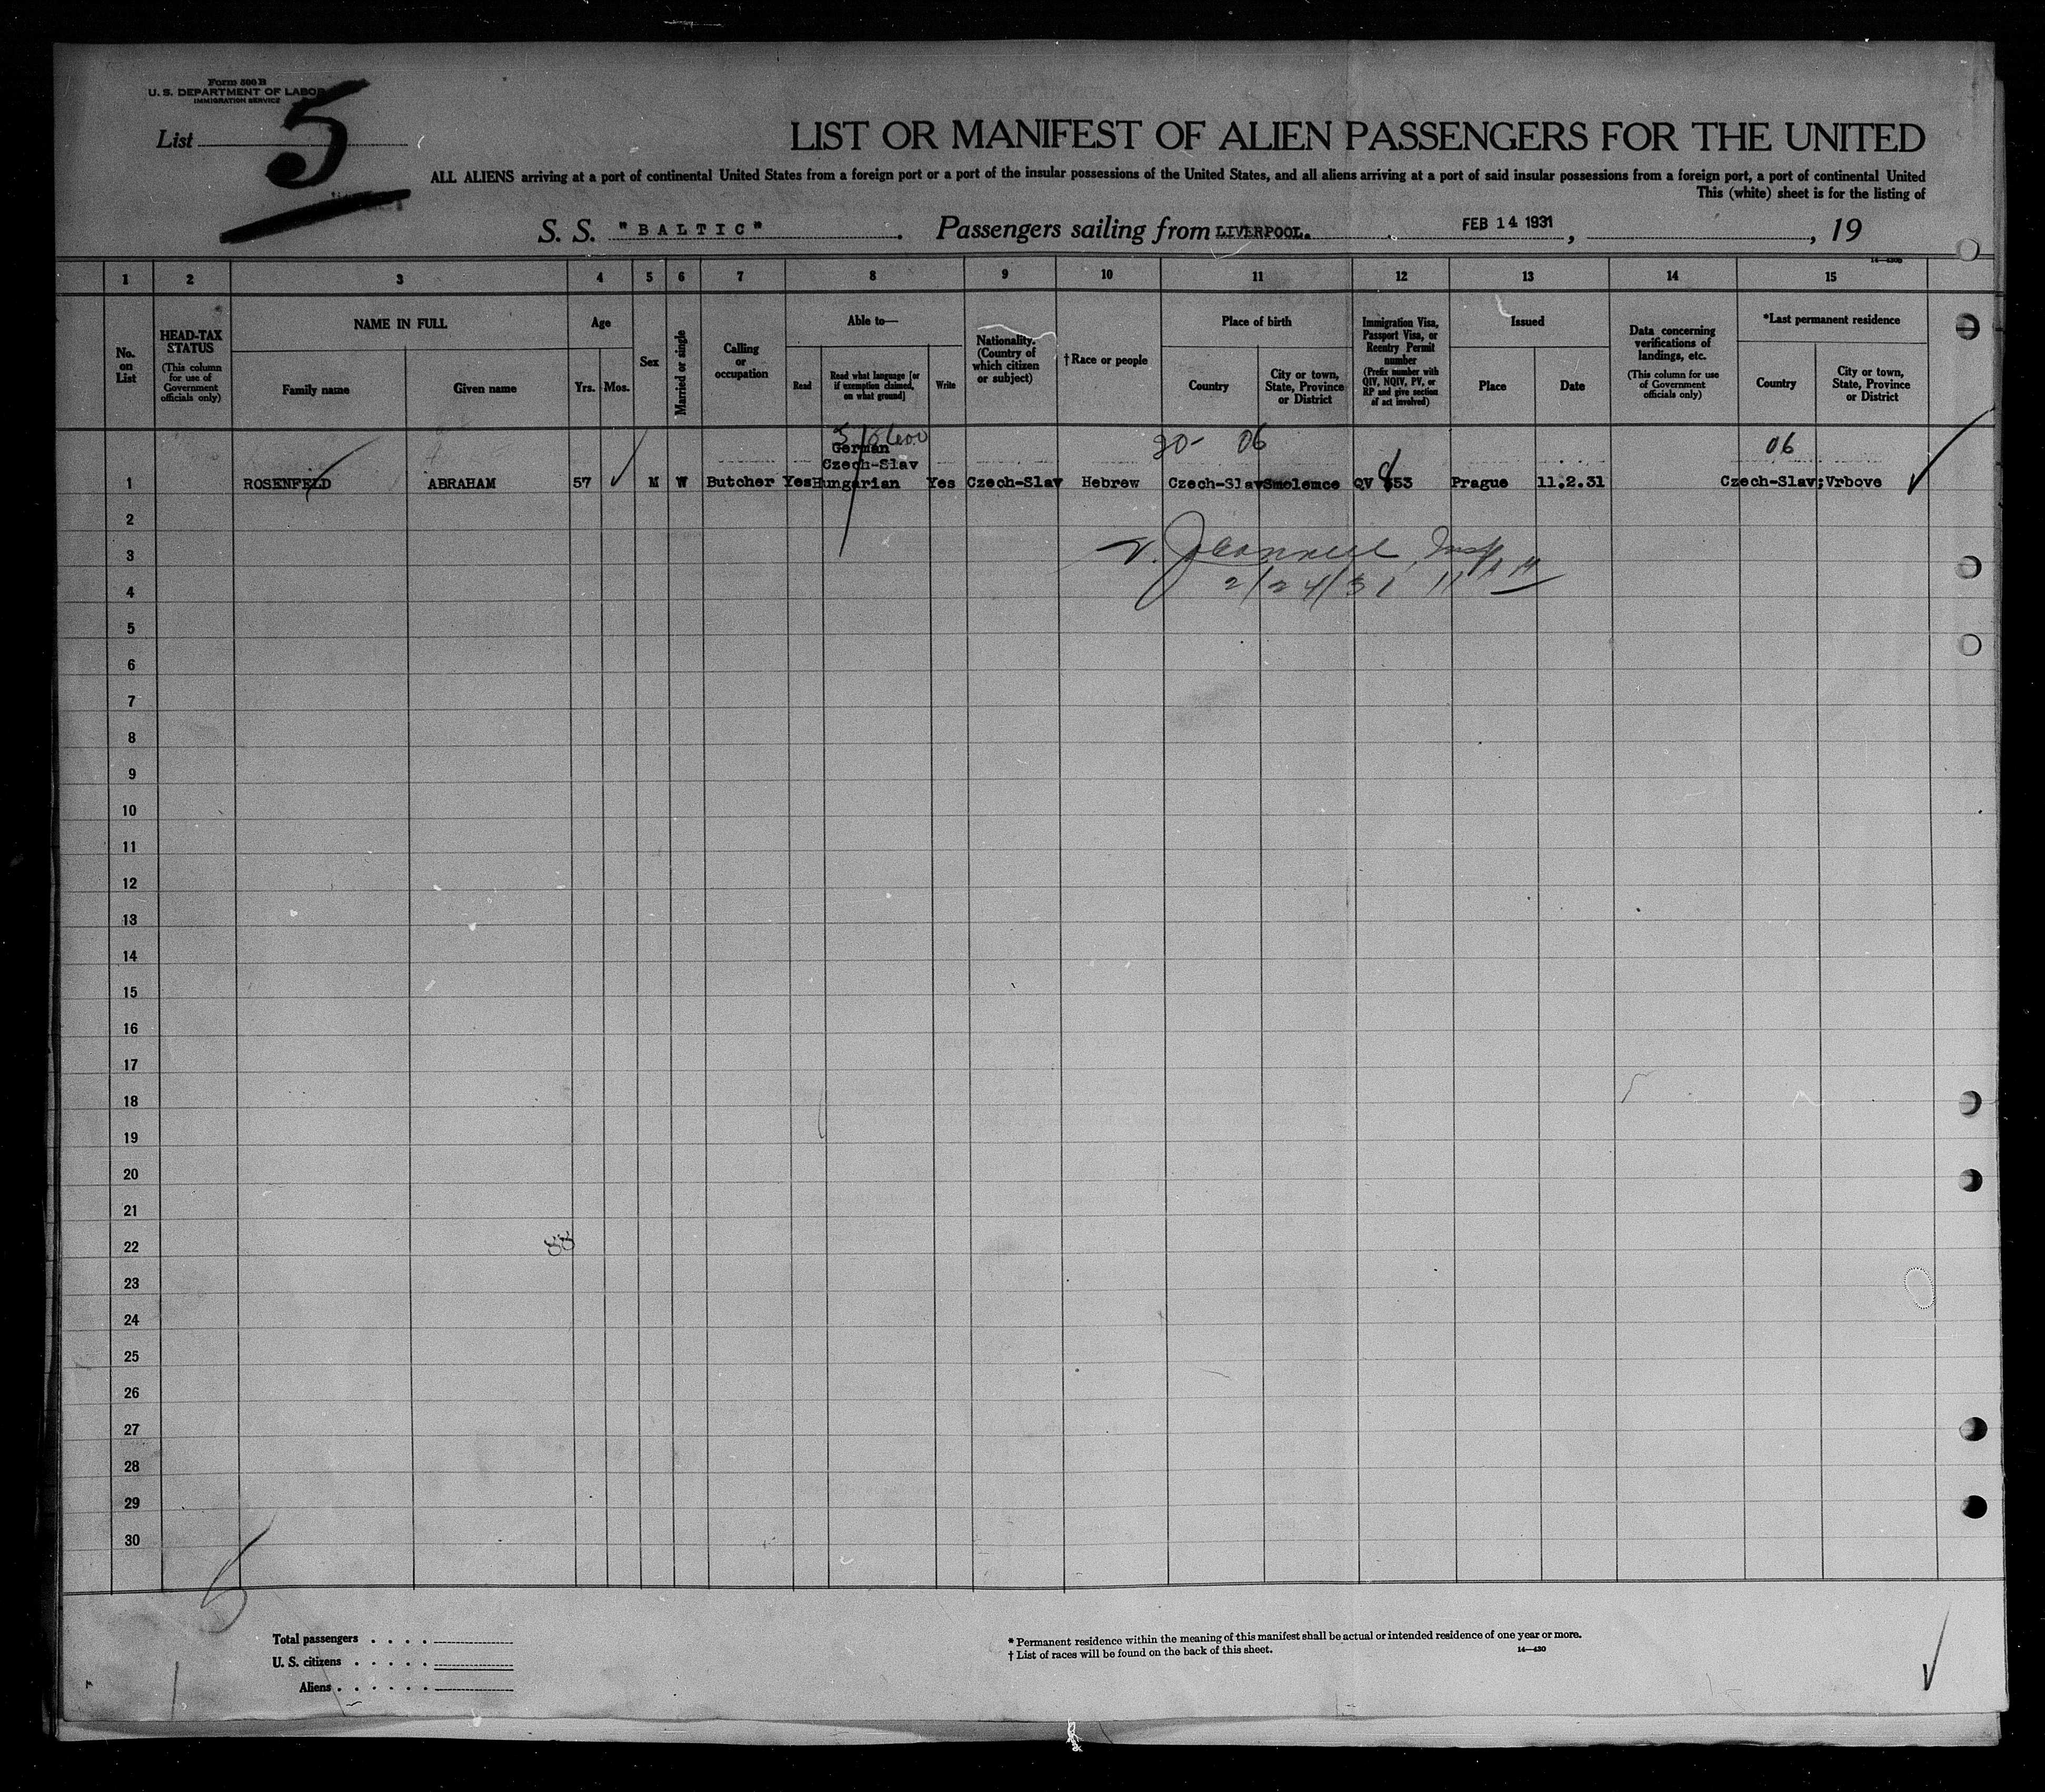 Form 500 B
U. S. DEPARTMENT OF LABOR
IMMIGRATION SERVICE
List 5
LIST OR MANIFEST OF ALIEN PASSENGERS FOR THE UNITED
ALL ALIENS arriving at a port of continental United States from a foreign port or a port of the insular possessions of the United States, and all aliens arriving at a port of said insular possessions from a foreign port, a port of continental United
This (white) sheet is for the listing of
S. S. "BALTIC". Passengers sailing from LIVERPOOL. FEB 14 1931, , 19
14—430B
1 2 3 4 5 6 7 8 9 10 11 12 13 14 15
No. on List
HEAD-TAX STATUS
(This column for use of Government officials only)
NAME IN FULL
Family name
Given name
Age
Yrs.
Mos.
Sex
Married or single
Calling or occupation
Able to—
Read
Read what language [or if exemption claimed, on what ground]
Write
Nationality. (Country of which citizen or subject)
†Race or people
Place of birth
Country
City or town, State, Province or District
Immigration Visa, Passport Visa, or Reentry Permit number
(Prefix number with QIV, NQIV, PV, or RP and give section of act involved)
Issued
Place
Date
Data concerning verifications of landings, etc.
(This column for use of Government officials only)
*Last permanent residence
Country
City or town, State, Province or District
30- 06 06
German
Czech-Slav
1 ROSENFELD ABRAHAM 57 M W Butcher Yes Hungarian Yes Czech-Slav Hebrew Czech-Slav Smolemce QV 53 Prague 11.2.31 Czech-Slav; Vrbove
2
3
2/24/31 11 AM
4
5
6
7
8
9
10
11
12
13
14
15
16
17
18
19
20
21
22
23
24
25
26
27
28
29
30
Total passengers . . . .
U. S. citizens . . . . .
Aliens . . . . . .
* Permanent residence within the meaning of this manifest shall be actual or intended residence of one year or more.
† List of races will be found on the back of this sheet.
14—430